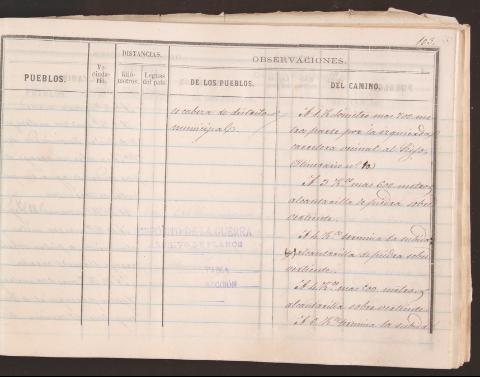 103
PUEBLOS.
Ve-
cinda-
rio.
DISTANCIAS.
Kiló-
metros.
Leguas
del país.
OBSERVACIONES.
DE LOS PUEBLOS.
DEL CAMINO.
es cabeza de distrito
municipal.
A 1 Kilómetro mas 700 me-
tros parte por la izquierda
carretera vecinal al
Itinerario nº 10
A 3 Kms mas 600 metros
alcantarilla de piedra sobre
vertiente.
A 4 Kms termina la subida
alcantarilla de piedra sobre
vertiente.
A 4 Kms mas 500 metros
alcantarilla sobre vertiente.
A 6 Kms termina la subida
DEPÓSITO DE LA GUERRA
ARCHIVO DE PLANOS
SECCIÓN